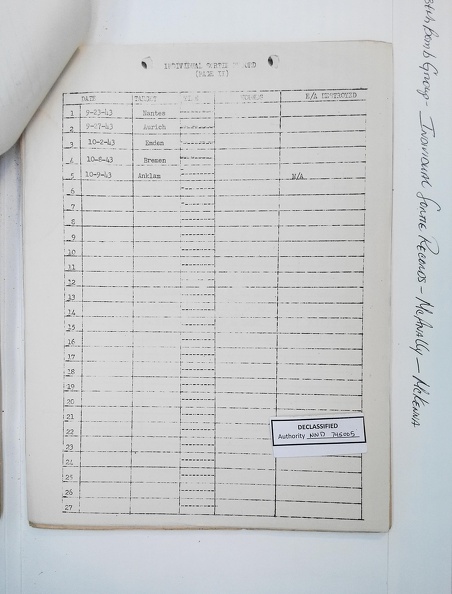 INDIVIDUAL SORTIE CARD
(PAGE II)
DATE TARGET E/A DESTROYED
1 9-23-43 Nantes
2 9-27-43 Aurich
3 10-2-43 Emden
4 10-8-43 Bremen
5 10-9-43 Anklam N/A
6
7
8
9
10
11
12
13
14
15
16
17
18
19
20
21
22
23
24
25
26
27
DECLASSIFIED
Authority NND 745005
Bomb Group - Individual Sortie Records - McAnally - McKenna